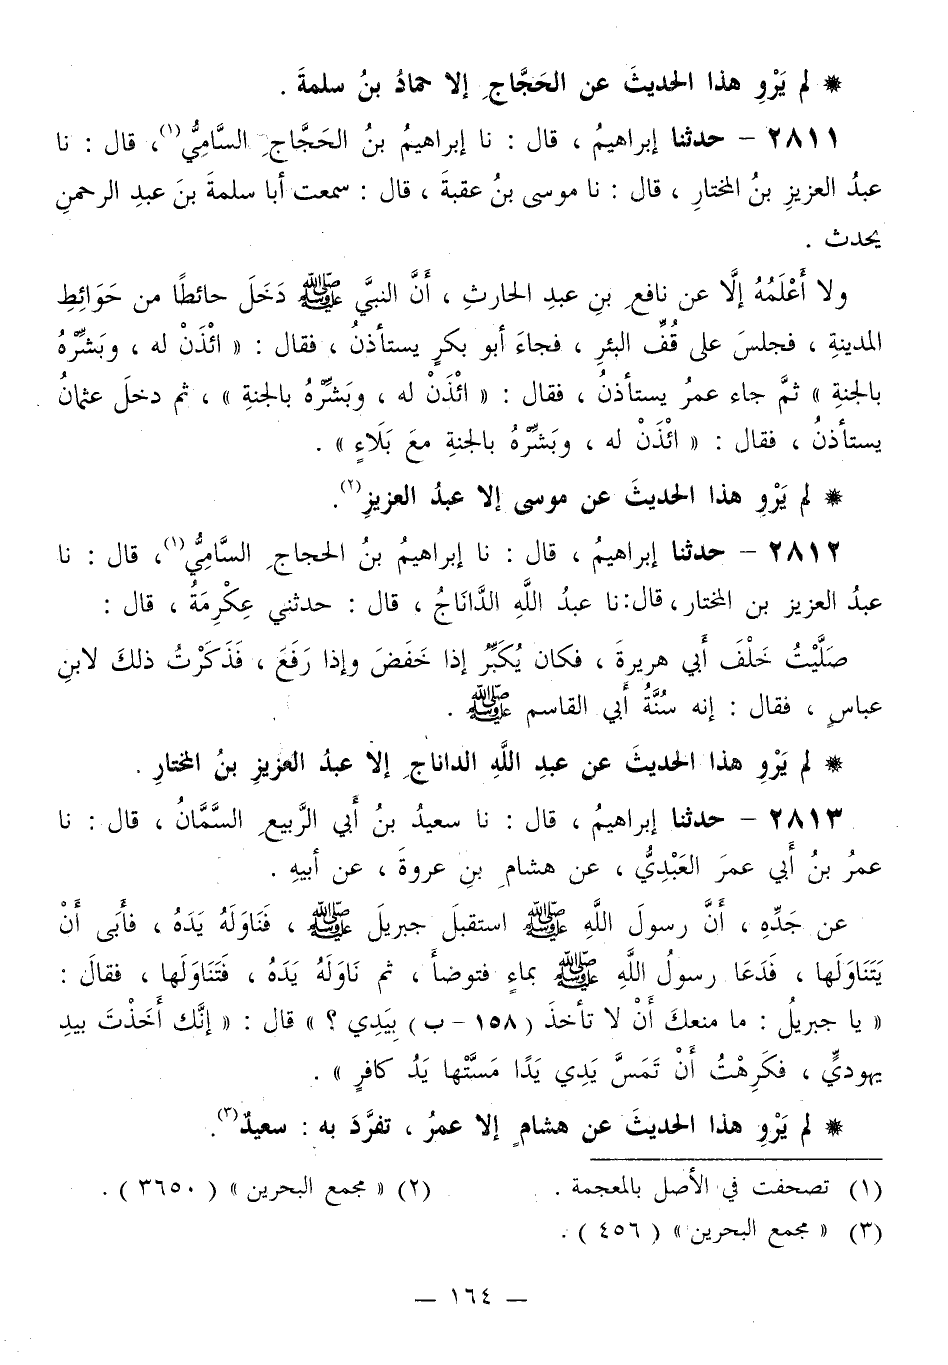 * لم يَرْوِ هذا الحديثَ عن الحَجَّاجِ إلا حمادُ بنُ سلمةَ .
٢٨١١ - حدثنا إبراهيمُ ، قال : نا إبراهيمُ بنُ الحَجَّاجِ السَّامِيُّ(١)، قال : نا
عبدُ العزيزِ بنُ المختارِ ، قال : نا موسى بنُ عقبةَ ، قال : سمعت أبا سلمةَ بنَ عبدِ الرحمنِ
يحدث .
ولا أَعْلَمُهُ إلَّا عن نافعِ بنِ عبدِ الحارثِ ، أَنَّ النبيَّ ﷺ دَخَلَ حائطًا من حَوَائِطِ
المدينةِ ، فجلسَ على قُفِّ البئرِ ، فجاءَ أبو بكرٍ يستأذنُ ، فقال : « ائْذَنْ له ، وبَشِّرْهُ
بالجنةِ » ثمَّ جاء عمرُ يستأذنُ ، فقال : « ائْذَنْ له ، وبَشِّرْهُ بالجنةِ » ، ثم دخلَ عثمانُ
يستأذنُ ، فقال : « ائْذَنْ له ، وبَشِّرْهُ بالجنةِ معَ بَلَاءٍ » .
* لم يَرْوِ هذا الحديثَ عن موسى إلا عبدُ العزيزِ(٢).
٢٨١٢ - حدثنا إبراهيمُ ، قال : نا إبراهيمُ بنُ الحجاجِ السَّامِيُّ(١)، قال : نا
عبدُ العزيز بن المختار ، قال : نا عبدُ اللَّهِ الدَّانَاجُ ، قال : حدثني عِكْرِمَةُ ، قال :
صَلَّيْتُ خَلْفَ أبي هريرةَ ، فكان يُكَبِّرُ إذا خَفَضَ وإذا رَفَعَ ، فَذَكَرْتُ ذلكَ لابنِ
عباسٍ ، فقال : إنه سُنَّةُ أبي القاسم ﷺ .
* لم يَرْوِ هذا الحديثَ عن عبدِ اللَّهِ الداناجِ إلا عبدُ العزيزِ بنُ المختارِ .
٢٨١٣ - حدثنا إبراهيمُ ، قال : نا سعيدُ بنُ أبي الرَّبيعِ السَّمَّانُ ، قال : نا
عمرُ بنُ أبي عمرَ العَبْدِيُّ ، عن هشامِ بنِ عروةَ ، عن أبيهِ .
عن جَدِّهِ ، أَنَّ رسولَ اللَّهِ ﷺ استقبلَ جبريلَ ﷺ ، فَنَاوَلَهُ يَدَهُ ، فأَبَى أَنْ
يَتَنَاوَلَها ، فَدَعَا رسولُ اللَّهِ ﷺ بماءٍ فتوضأَ ، ثم نَاوَلَهُ يَدَهُ ، فَتَنَاوَلَها ، فقالَ :
« يا جبريلُ : ما منعكَ أَنْ لا تأخذَ ( ١٥٨ - ب ) بِيَدِي ؟ » قال : « إنَّك أَخَذْتَ بيدِ
يهوديٍّ ، فكَرِهْتُ أَنْ تَمَسَّ يَدِي يَدًا مَسَّتْها يَدُ كافرٍ » .
* لم يَرْوِ هذا الحديثَ عن هشامٍ إلا عمرُ ، تفرَّدَ به : سعيدٌ(٣).
(١) تصحفت في الأصل بالمعجمة . (٢) « مجمع البحرين » ( ٣٦٥٠ ) .
(٣) « مجمع البحرين » ( ٤٥٦ ) .
— ١٦٤ —